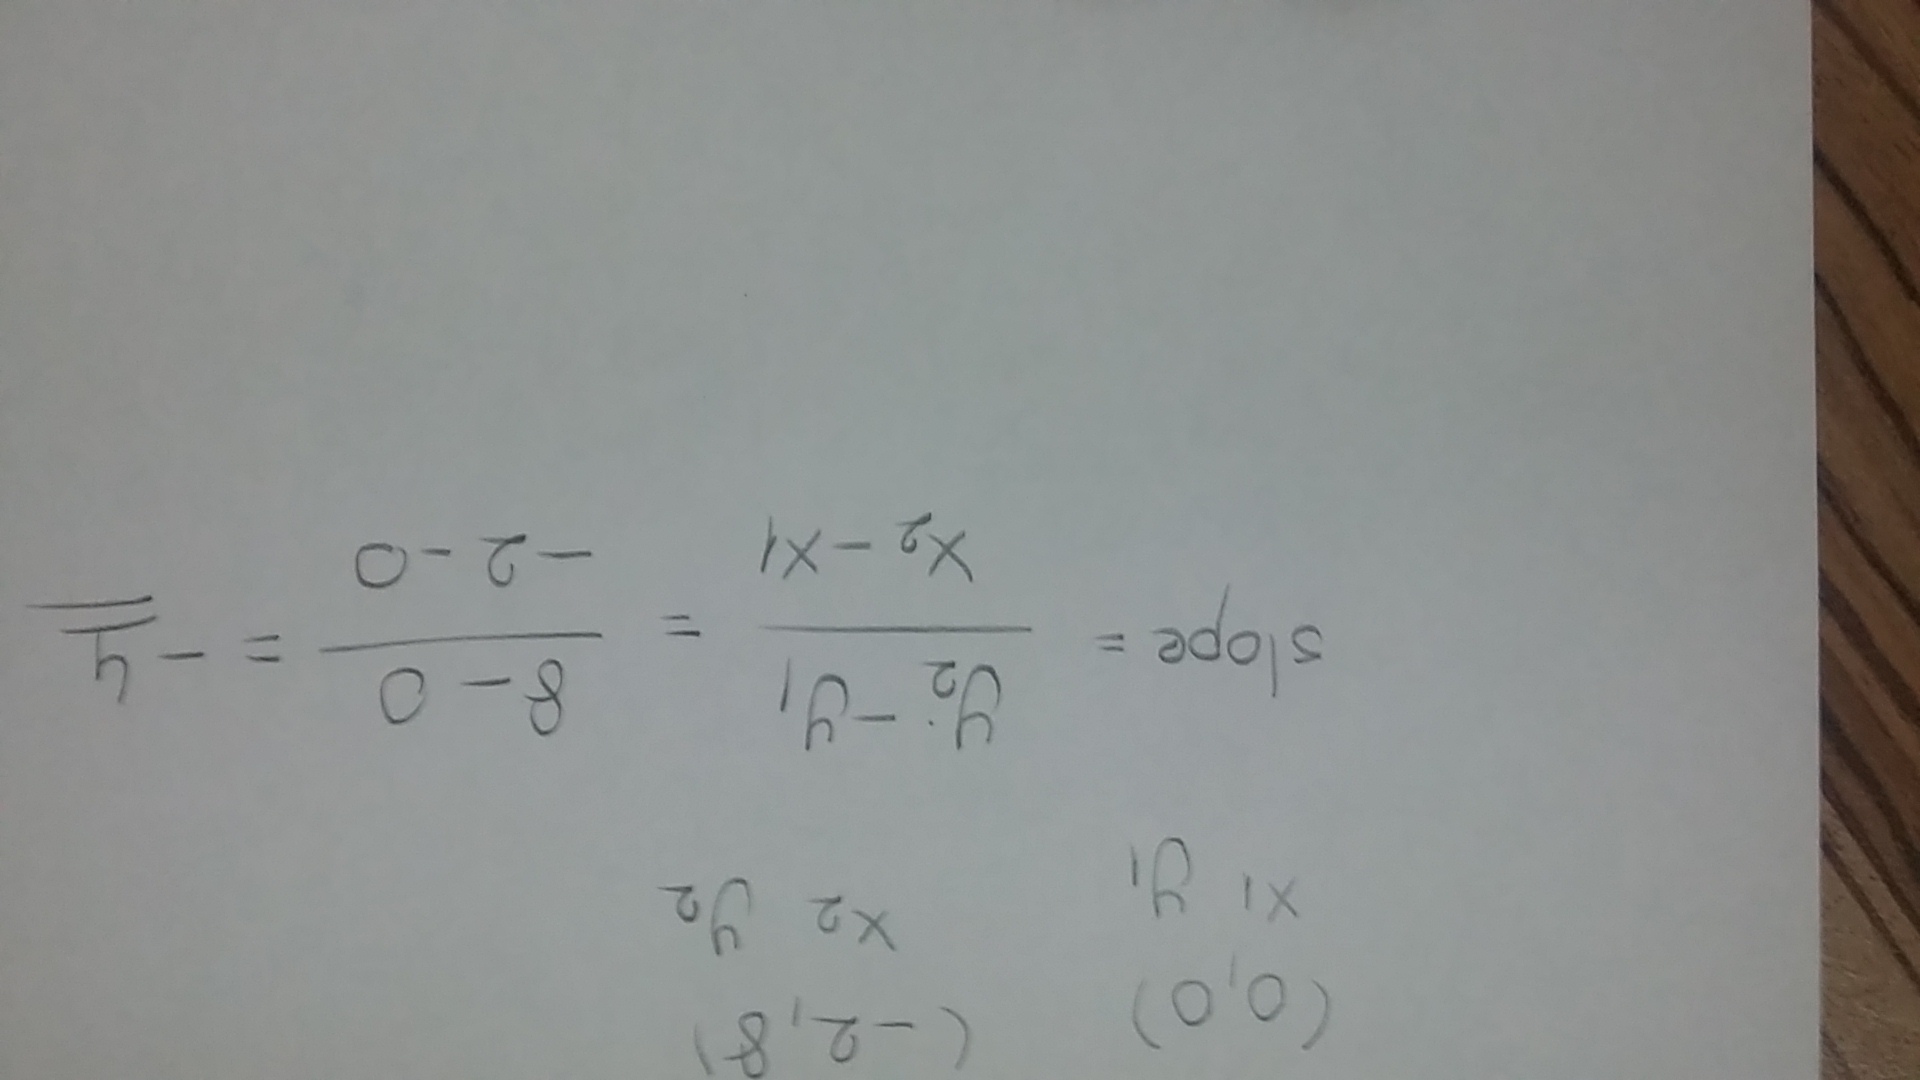 (0,0) (-2,8)
x1 y1 x2 y2
slope = y2 - y1 / x2 - x1 = 8 - 0 / -2 - 0 = -4